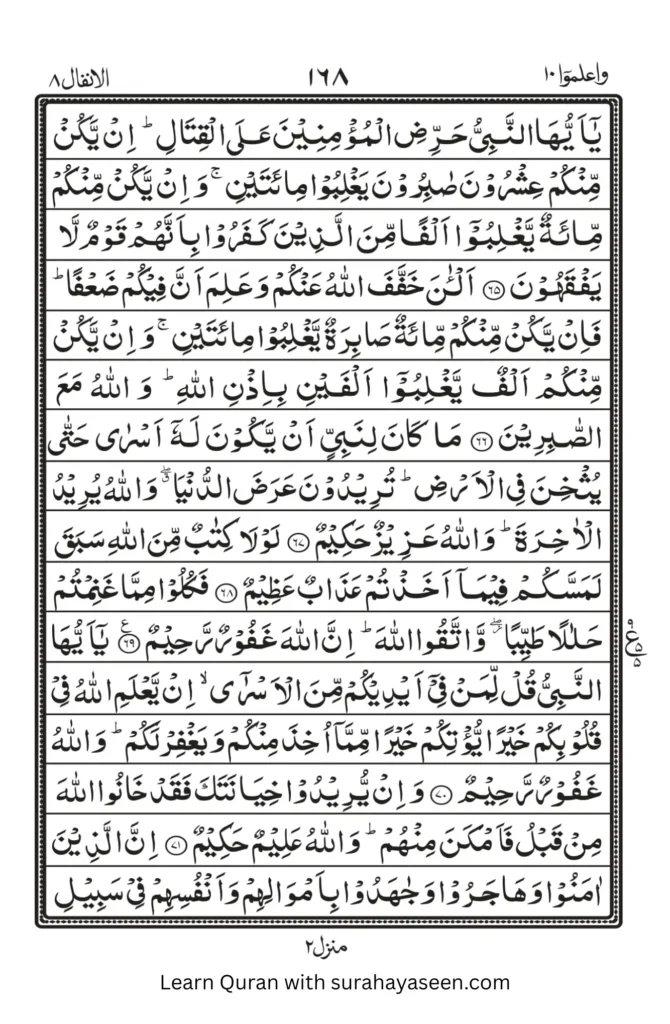 واعلموٓا ١٠ ١٦٨ الانفال ٨
يٰٓاَيُّهَا النَّبِيُّ حَرِّضِ الْمُؤْمِنِيْنَ عَلَى الْقِتَالِ ؕ اِنْ يَّكُنْ
مِّنْكُمْ عِشْرُوْنَ صٰبِرُوْنَ يَغْلِبُوْا مِائَتَيْنِ ۚ وَاِنْ يَّكُنْ مِّنْكُمْ
مِّائَةٌ يَّغْلِبُوْٓا اَلْفًا مِّنَ الَّذِيْنَ كَفَرُوْا بِاَنَّهُمْ قَوْمٌ لَّا
يَفْقَهُوْنَ ۝۶۵ اَلْـٰٔنَ خَفَّفَ اللّٰهُ عَنْكُمْ وَعَلِمَ اَنَّ فِيْكُمْ ضَعْفًا ؕ
فَاِنْ يَّكُنْ مِّنْكُمْ مِّائَةٌ صَابِرَةٌ يَّغْلِبُوْا مِائَتَيْنِ ۚ وَاِنْ يَّكُنْ
مِّنْكُمْ اَلْفٌ يَّغْلِبُوْٓا اَلْفَيْنِ بِاِذْنِ اللّٰهِ ؕ وَاللّٰهُ مَعَ
الصّٰبِرِيْنَ ۝۶۶ مَا كَانَ لِنَبِيٍّ اَنْ يَّكُوْنَ لَهٗٓ اَسْرٰى حَتّٰى
يُثْخِنَ فِى الْاَرْضِ ؕ تُرِيْدُوْنَ عَرَضَ الدُّنْيَا ۖۗ وَاللّٰهُ يُرِيْدُ
الْاٰخِرَةَ ؕ وَاللّٰهُ عَزِيْزٌ حَكِيْمٌ ۝۶۷ لَوْلَا كِتٰبٌ مِّنَ اللّٰهِ سَبَقَ
لَمَسَّكُمْ فِيْمَآ اَخَذْتُمْ عَذَابٌ عَظِيْمٌ ۝۶۸ فَكُلُوْا مِمَّا غَنِمْتُمْ
حَلٰلًا طَيِّبًا ۖ وَّاتَّقُوا اللّٰهَ ؕ اِنَّ اللّٰهَ غَفُوْرٌ رَّحِيْمٌ ۝۶۹ۧ يٰٓاَيُّهَا
النَّبِيُّ قُلْ لِّمَنْ فِيْٓ اَيْدِيْكُمْ مِّنَ الْاَسْرٰٓى ۙ اِنْ يَّعْلَمِ اللّٰهُ فِيْ
قُلُوْبِكُمْ خَيْرًا يُّؤْتِكُمْ خَيْرًا مِّمَّآ اُخِذَ مِنْكُمْ وَيَغْفِرْ لَكُمْ ؕ وَاللّٰهُ
غَفُوْرٌ رَّحِيْمٌ ۝۷۰ وَاِنْ يُّرِيْدُوْا خِيَانَتَكَ فَقَدْ خَانُوا اللّٰهَ
مِنْ قَبْلُ فَاَمْكَنَ مِنْهُمْ ؕ وَاللّٰهُ عَلِيْمٌ حَكِيْمٌ ۝۷۱ اِنَّ الَّذِيْنَ
اٰمَنُوْا وَهَاجَرُوْا وَجٰهَدُوْا بِاَمْوَالِهِمْ وَاَنْفُسِهِمْ فِيْ سَبِيْلِ
منزل ٢
Learn Quran with surahayaseen.com